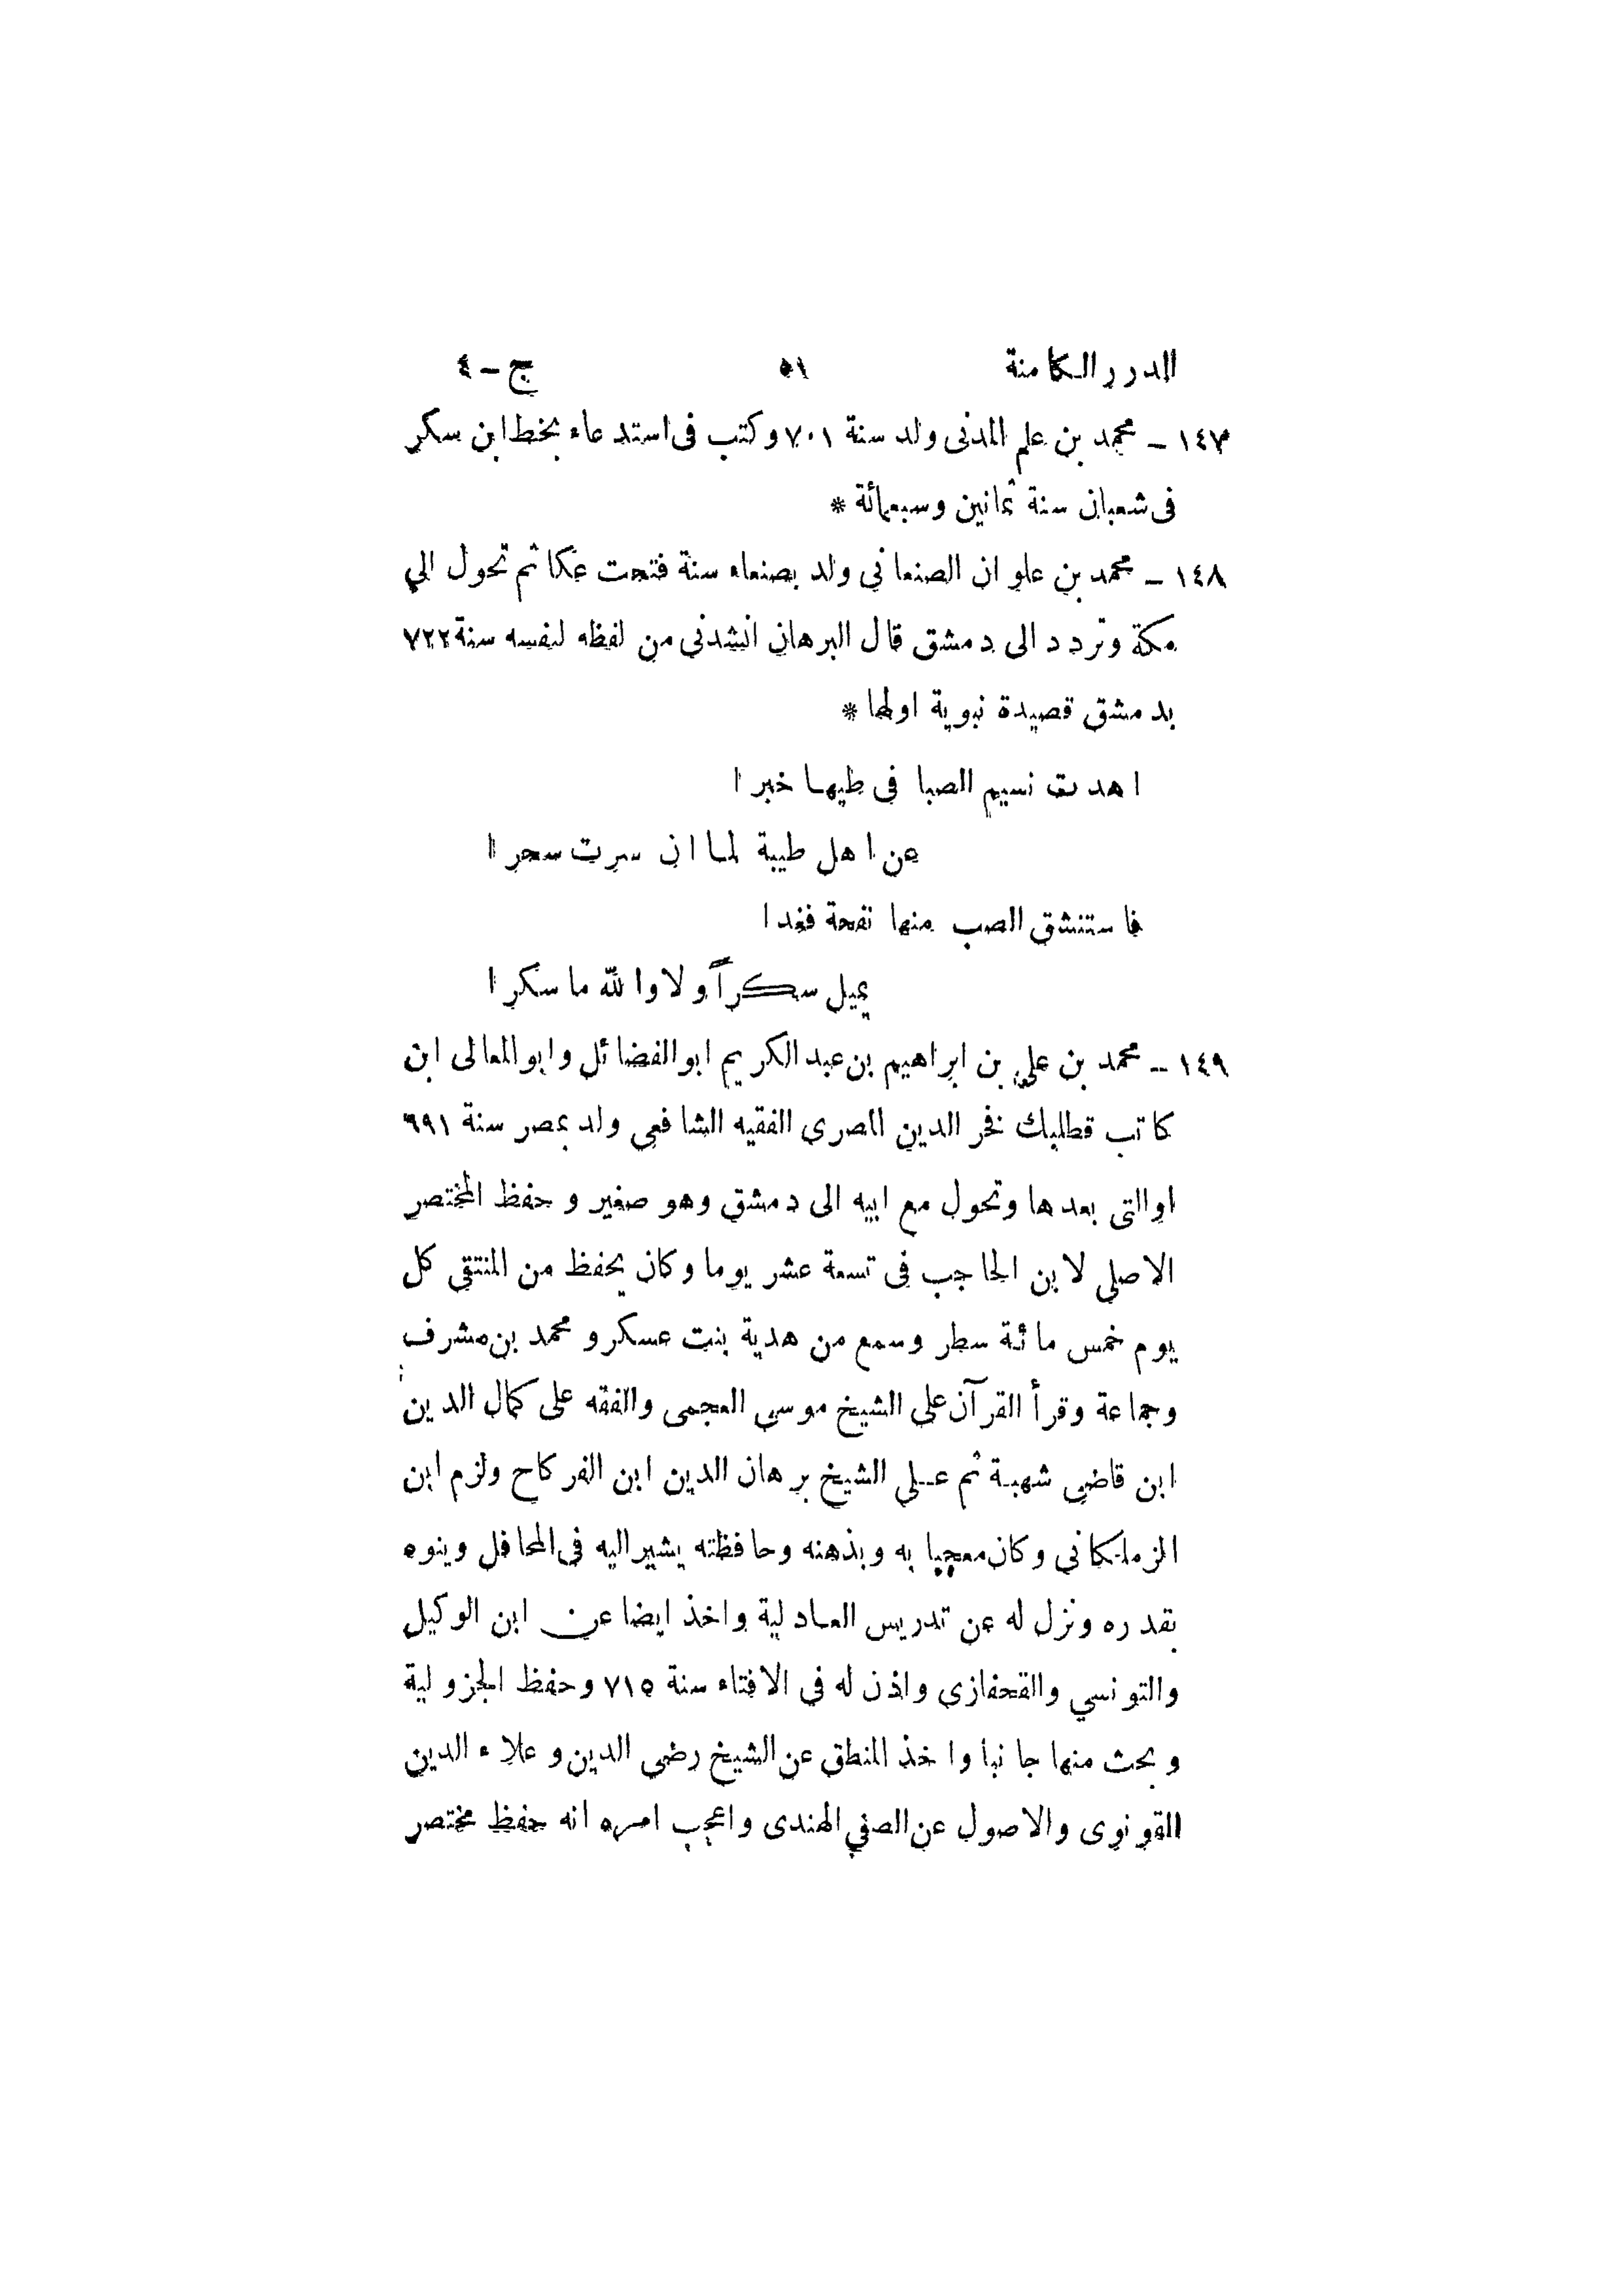 الدرر الكامنة ٥١ ج – ٤
١٤٧ – محمد بن علم المدنى ولد سنة ٧٠١ وكتب فى استدعاء بخط ابن سكر
فى شعبان سنة ثمانين وسبعمائة *
١٤٨ – محمد بن علوان الصنعانى ولد بصنعاء سنة فتحت عكا ثم تحول الى
مكة وتردد الى دمشق قال البرهان انشدنى من لفظه لنفسه سنة ٧٢٢
بدمشق قصيدة نبوية اولها *
اهدت نسيم الصبا فى طيها خبرا
عن اهل طيبة لما ان سرت سحرا
فاستنشق الصب منها نفحة فغدا
يميل سكراً ولا والله ما سكرا
١٤٩ – محمد بن على بن ابراهيم بن عبد الكريم ابو الفضائل وابو المعالى ابن
كاتب قطلبك فخر الدين المصرى الفقيه الشافعى ولد بمصر سنة ٦٩١
او التى بعدها وتحول مع ابيه الى دمشق وهو صغير وحفظ المختصر
الاصلى لابن الحاجب فى تسعة عشر يوما وكان يحفظ من المنتقى كل
يوم خمس مائة سطر وسمع من هدية بنت عسكر ومحمد بن مشرف
وجماعة وقرأ القرآن على الشيخ موسى العجمى والفقه على كمال الدين
ابن قاضى شهبة ثم على الشيخ برهان الدين ابن الفركاح ولزم ابن
الزملكانى وكان معجبا به وبذهنه وحافظته يشير اليه فى المحافل وينوه
بقدره ونزل له عن تدريس العادلية واخذ ايضا عن ابن الوكيل
والتونسي والقحفازى واذن له فى الافتاء سنة ٧١٥ وحفظ الجزولية
وبحث منها جانبا واخذ المنطق عن الشيخ رضى الدين وعلاء الدين
القونوى والاصول عن الصفي الهندى واعجب امره انه حفظ مختصر